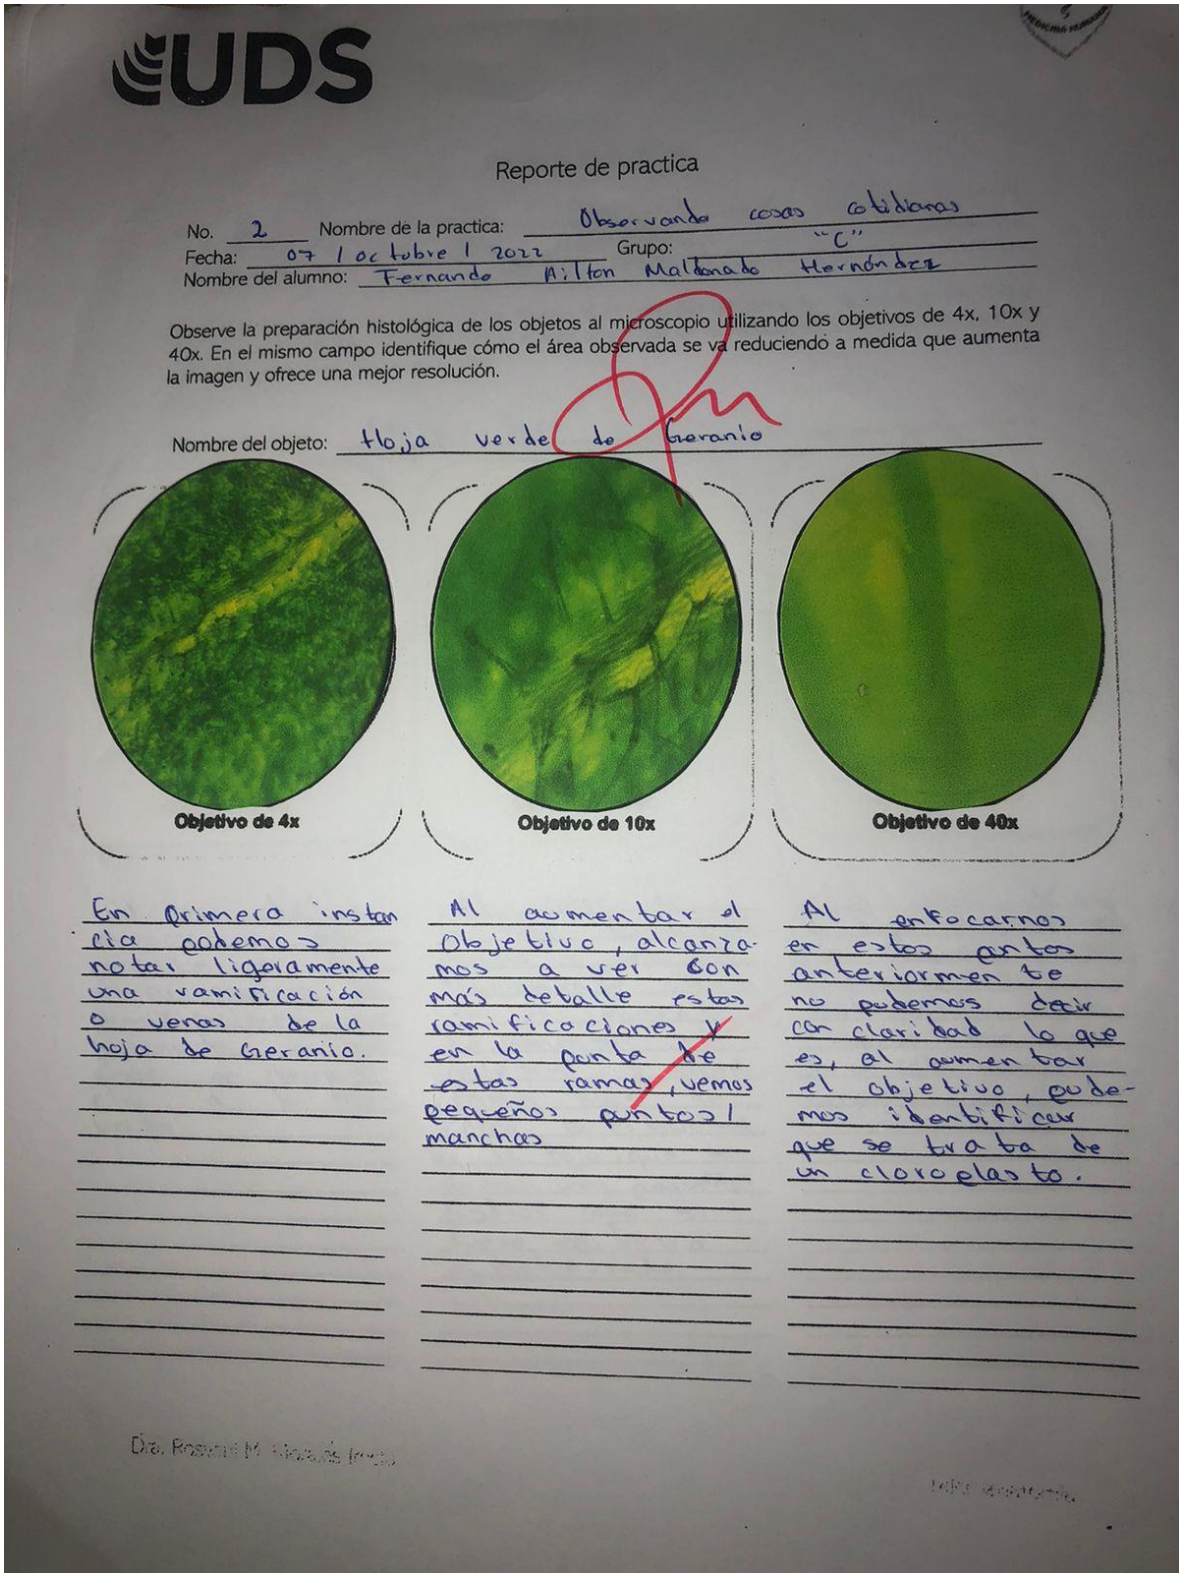 MEDICINA HUMANA
UDS
Reporte de practica
No. 2 Nombre de la practica: Observando cosas cotidianas
Fecha: 07 / octubre / 2022 Grupo: "C"
Nombre del alumno: Fernando Ailton Maldonado Hernández
Observe la preparación histológica de los objetos al microscopio utilizando los objetivos de 4x, 10x y
40x. En el mismo campo identifique cómo el área observada se va reduciendo a medida que aumenta
la imagen y ofrece una mejor resolución.
Nombre del objeto: Hoja verde de Geranio
Objetivo de 4x
Objetivo de 10x
Objetivo de 40x
En primera instan
cia podemos
notar ligeramente
una ramificación
o venas de la
hoja de Geranio.
Al aumentar el
Objetivo, alcanza-
mos a ver con
más detalle estas
ramificaciones y
en la punta de
estas ramas, vemos
pequeños puntos/
manchas
Al enfocarnos
en estos puntos
anteriormen te
no podemos decir
con claridad lo que
es, al aumentar
el objetivo, pude-
mos identificar
que se trata de
un cloroplasto.
Dra. M.